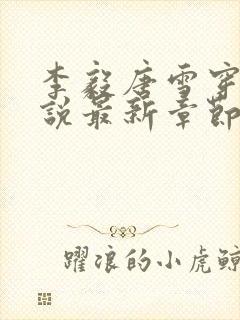 李毅唐雪穿
說最新章節
躍浪的小虎鯨